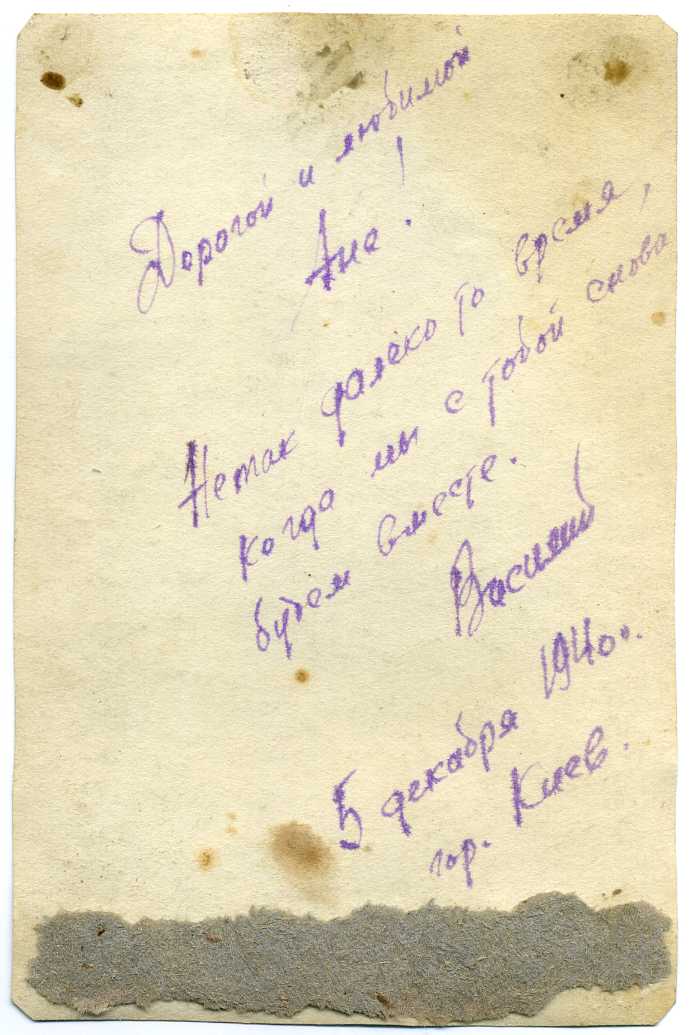 Дорогой и любимой
Ане!
Нетак далеко то время,
когда мы с тобой снова
будем вместе.
Василий
5 декабря 1940г.
гор. Киев.